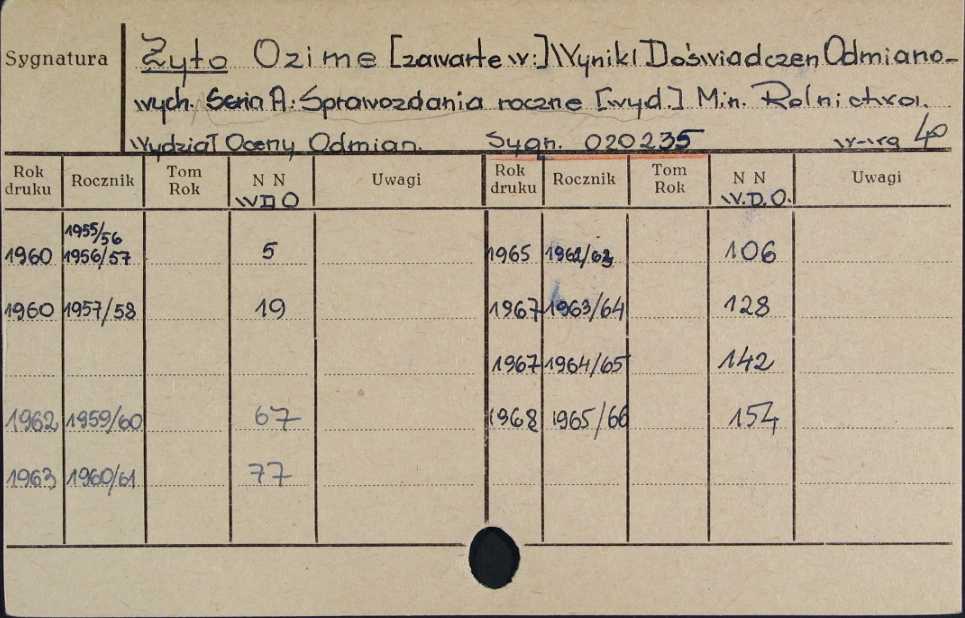 Sygnatura Żyto Ozime [zawarte w:] Wyniki Doświadczen Odmiano-
wych. Seria A: Sprawozdania roczne [wyd.] Min. Rolnictwa.
Wydział Oceny Odmian. Sygn. 020235 W-wa 40
Rok druku Rocznik Tom Rok N N W D O Uwagi Rok druku Rocznik Tom Rok N N W.D.O. Uwagi
1955/56
1960 1956/57 5 1965 1962/63 106
1960 1957/58 19 1967 1963/64 128
1967 1964/65 142
1962 1959/60 67 1968 1965/66 154
1963 1960/61 77